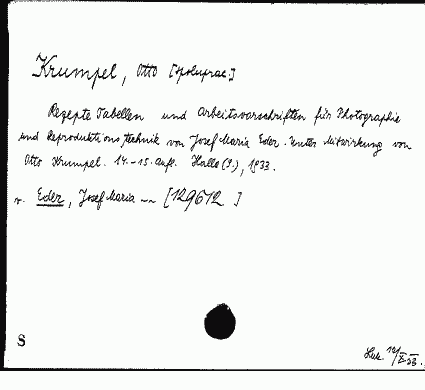 Krumpel, Otto [spoluprac.]
Rezepte Tabellen und Arbeitsvorschriften für Photographie
und Reproduktionstechnik von Josef Maria Eder. Unter Mitwirkung von
Otto Krumpel. 14.-15. Aufl. Halle (S.), 1933.
v. Eder, Josef Maria — [129612 ]
S